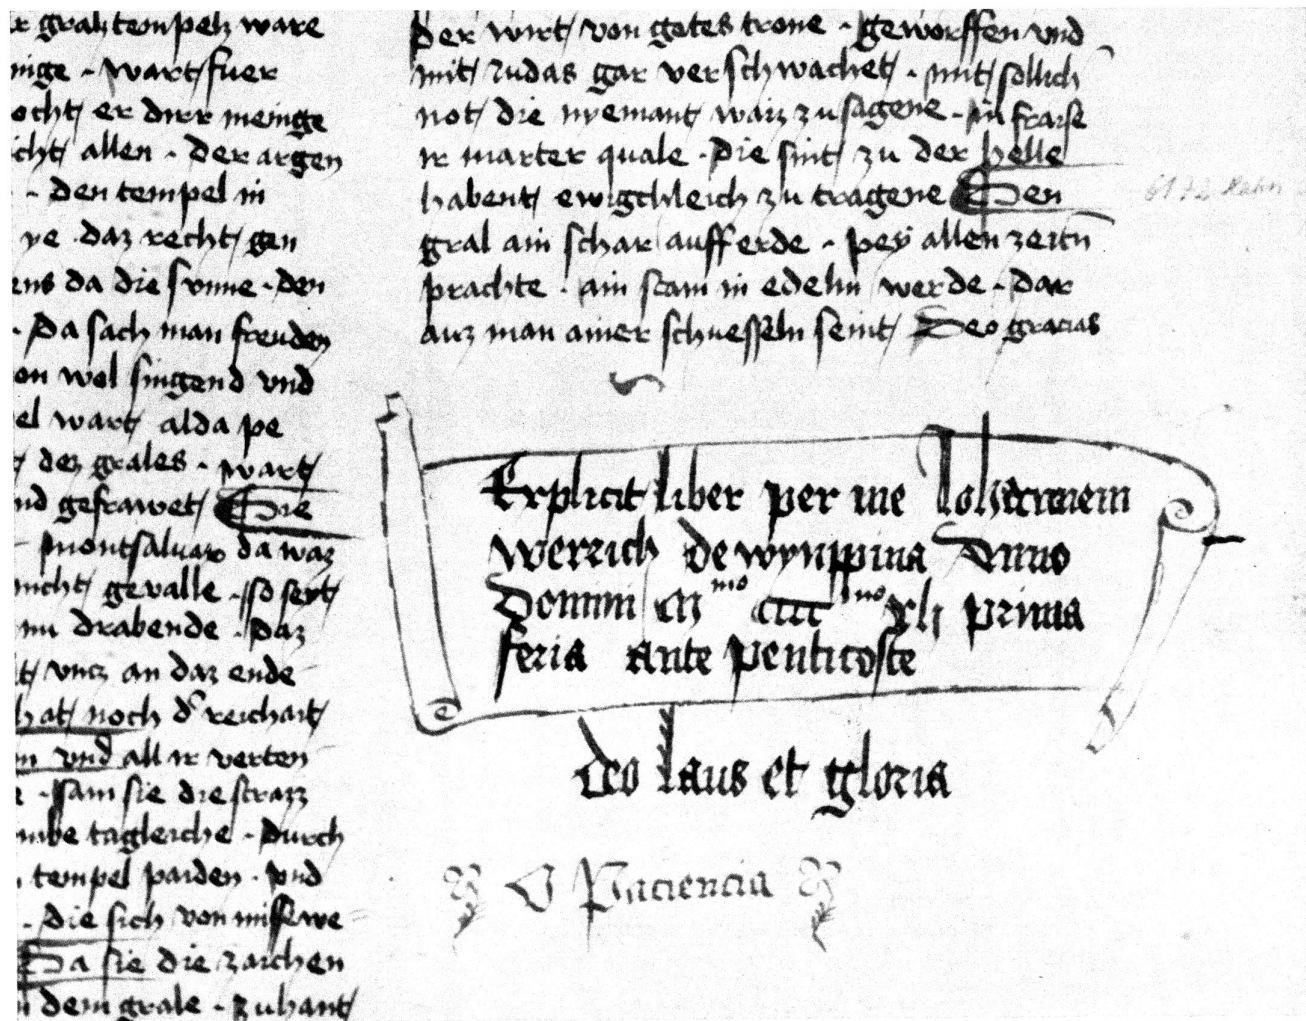 r gralz tempelz ware
nige · wart fuer
ocht er dirr meinge
cht allen · der argen
· den tempel in
ye · daz recht gen
ens da die sunne · den
· Da sach man freuden
on wol singend vnd
el wart alda pe
dez grales · wart
nd gefrawet Sie
montsaluatz da waz
nicht geualle · so seyt
nu drabende · Daz
t vncz an daz ende
hat noch d' reichait
n vnd all ir verten
· sam sie die strazz
tagleiche · Durch
tempel paiden · vnd
· die sich von missewe
Da sie die zaichen
n dem grale · zuhant
Der wirt von gotes trone · geworffen vnd
mit Judas gar verschwachet · mit sollich
not die nyemant waiz zu sagene · in fraise
ir marter quale · Die sint zu der helle
habent ewigchleich zu tragene Den
gral ain schar auff erde · pey allen zeitn
prachte · ain stain in edelm werde · Dar
auz man ainer schuesseln seint Deo gracias
Explicit liber per me Johannem
werrich de wympina Anno
Domini Mmo CCCCmo xlj prima
feria ante penticoste
deo laus et gloria
O Paciencia